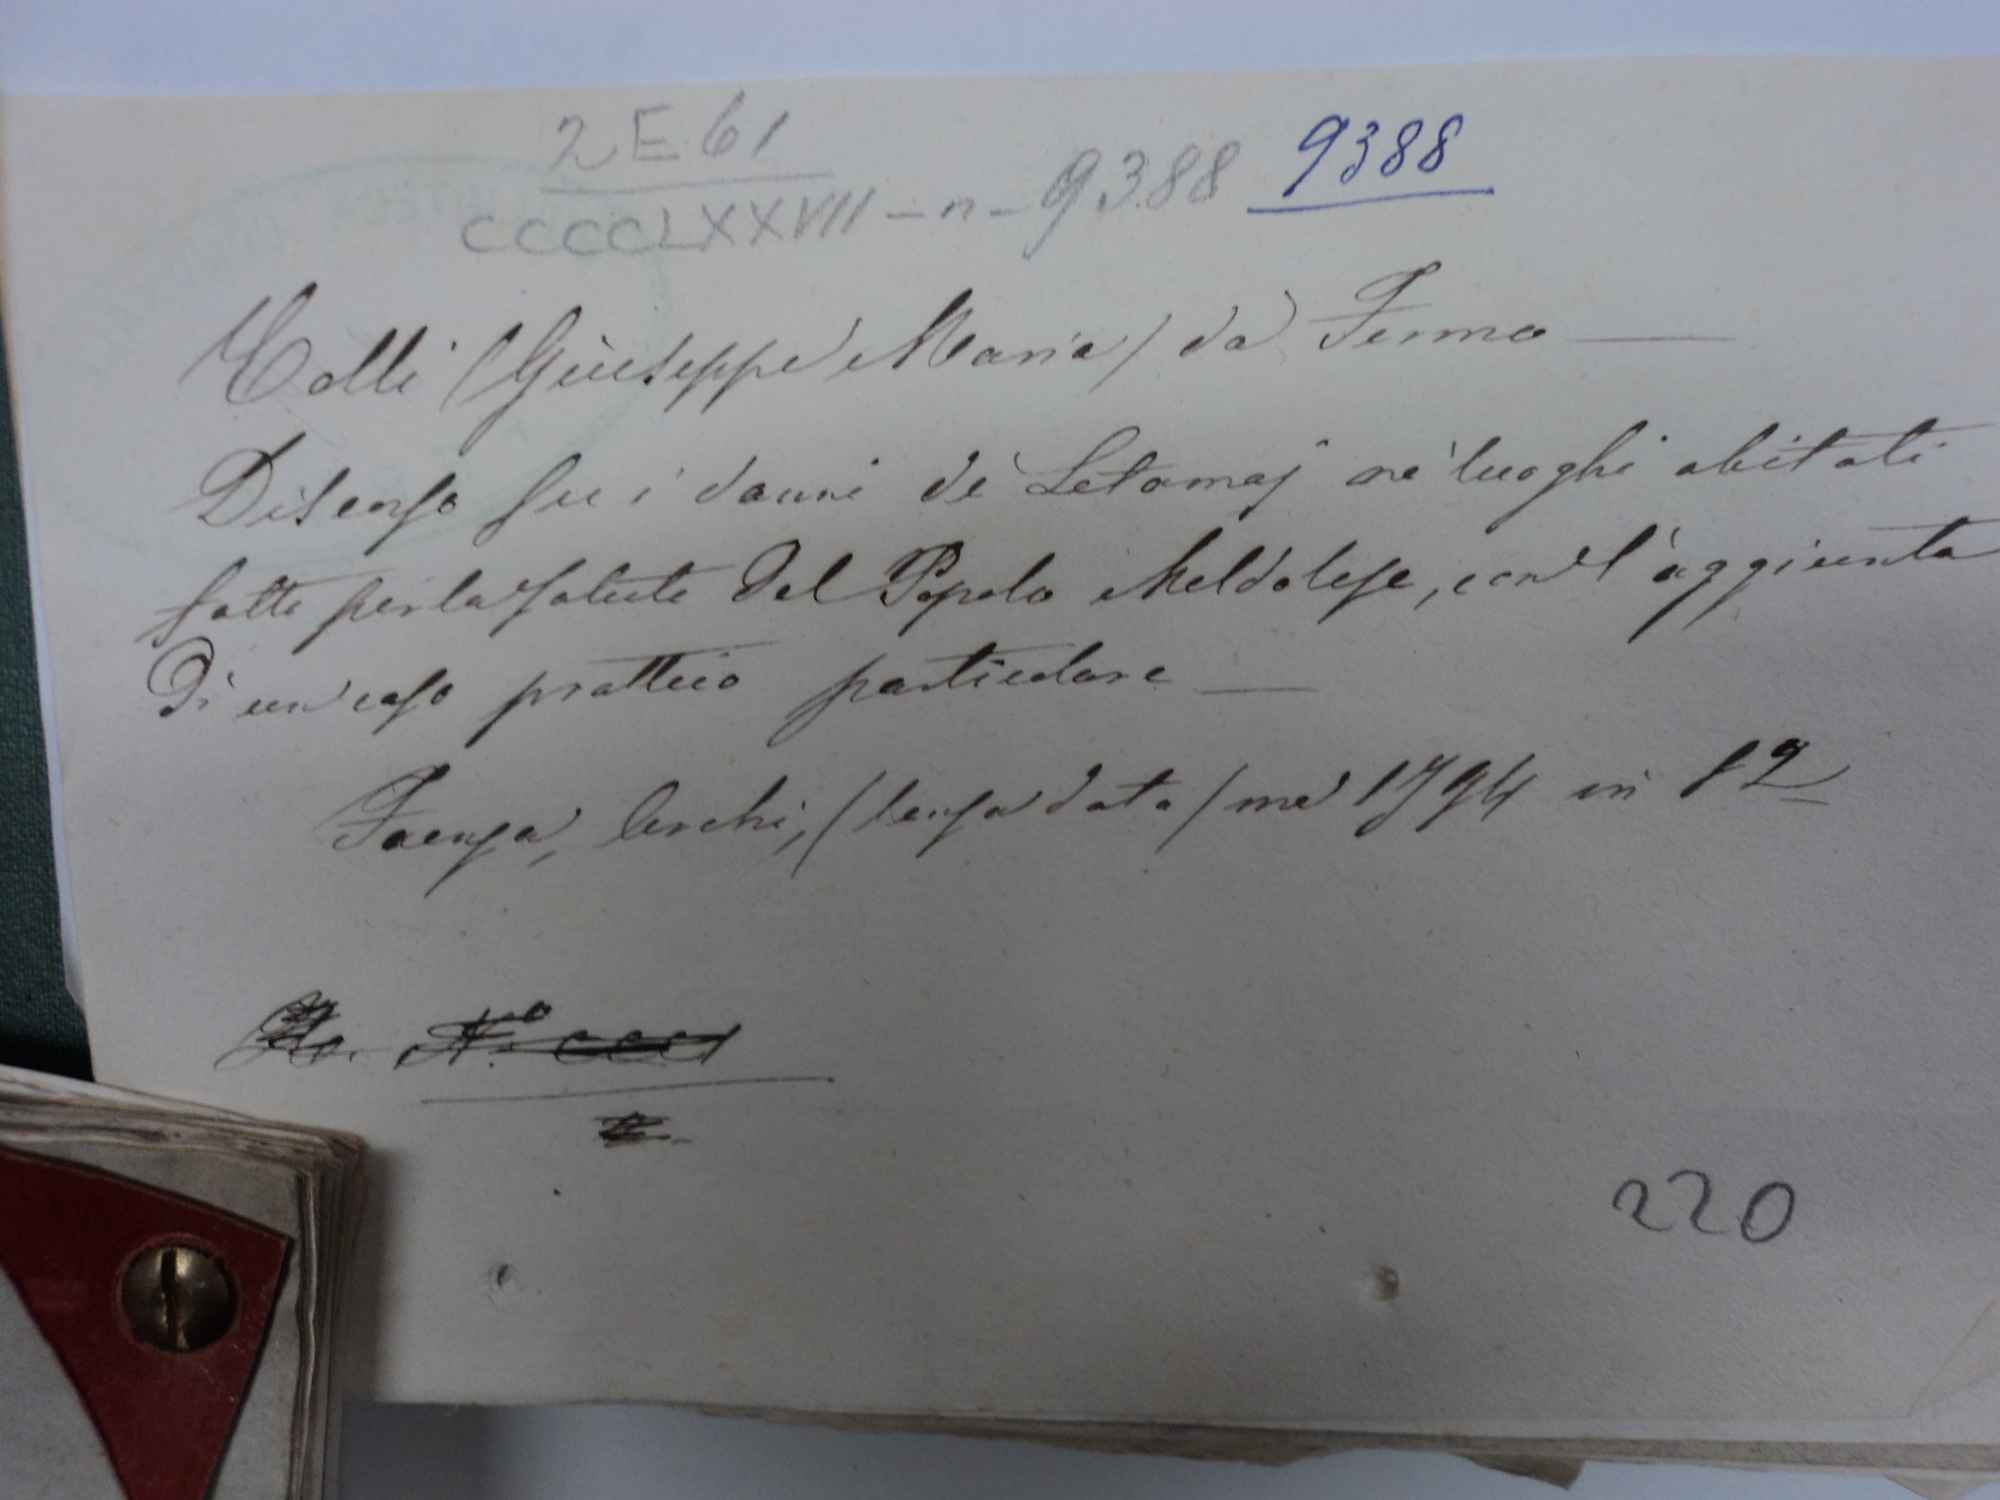 2 E 61
CCCCLXXVII - n - 9388 9388
Colli (Giuseppe Maria) da Fermo —
Discorso su i danni de' Letamaj ne' luoghi abitati
fatto per la salute del Popolo Meldolese, con l'aggiunta
di un caso prattico particolare —
Faenza, Archi, (senza data) ma 1794 in 12
220